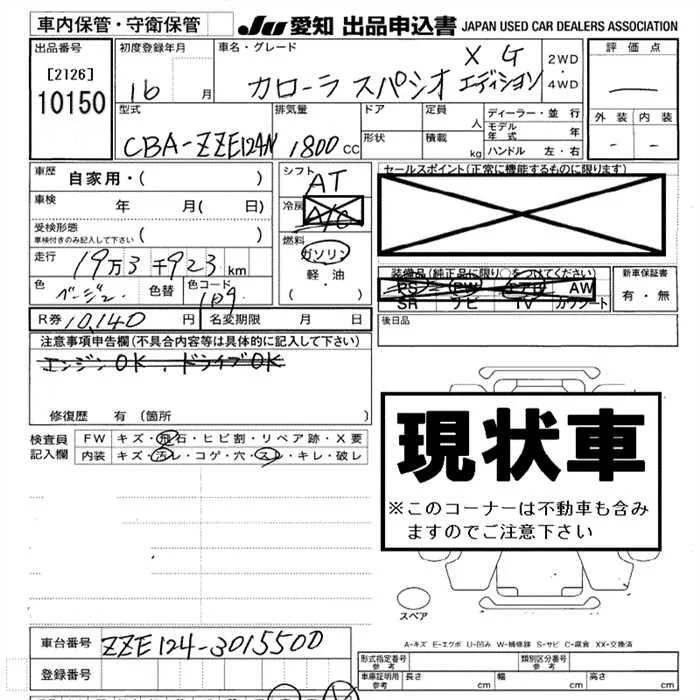 車内保管・守衛保管
JU 愛知 出品申込書 JAPAN USED CAR DEALERS ASSOCIATION
出品番号
[2126]
10150
初度登録年月
16 月
車名・グレード
カローラ スパシオ X G エディション
2WD
・
4WD
評価点
外装 内装
- -
型式
CBA-ZZE124N
排気量
1800 cc
ドア
形状
定員
人
積載
kg
ディーラー・並行
モデル年式 年
ハンドル 左・右
車歴
自家用・( )
車検
年 月( 日)
受検形態
車検付きのみ記入して下さい ( )
走行
19万3千923 km
色
ベージュ
色替
色コード
1D9
シフト
AT
冷房
A/C
燃料
ガソリン
・
軽油
( )
セールスポイント(正常に機能するものに限ります)
装備品(純正品に限り○をつけてください)
PS PW エアB AW
SR ナビ TV カワシート
新車保証書
有・無
R券 10,140 円
名変期限 月 日
後日品
注意事項申告欄(不具合内容等は具体的に記入して下さい)
エンジンOK、ドライブOK
修復歴 有 〔箇所 〕
現状車
※このコーナーは不動車も含み
ますのでご注意下さい
検査員
記入欄
FW キズ・飛石・ヒビ割・リペア跡・X要
内装 キズ・汚レ・コゲ・穴・スレ・キレ・破レ
スペア
A-キズ E-エクボ U-凹み W-補修跡 S-サビ C-腐食 XX-交換済
車台番号
ZZE124-3015500
登録番号
形式指定番号
参考
類別区分番号
参考
車庫証明用
参考
長さ cm 幅 cm 高さ cm